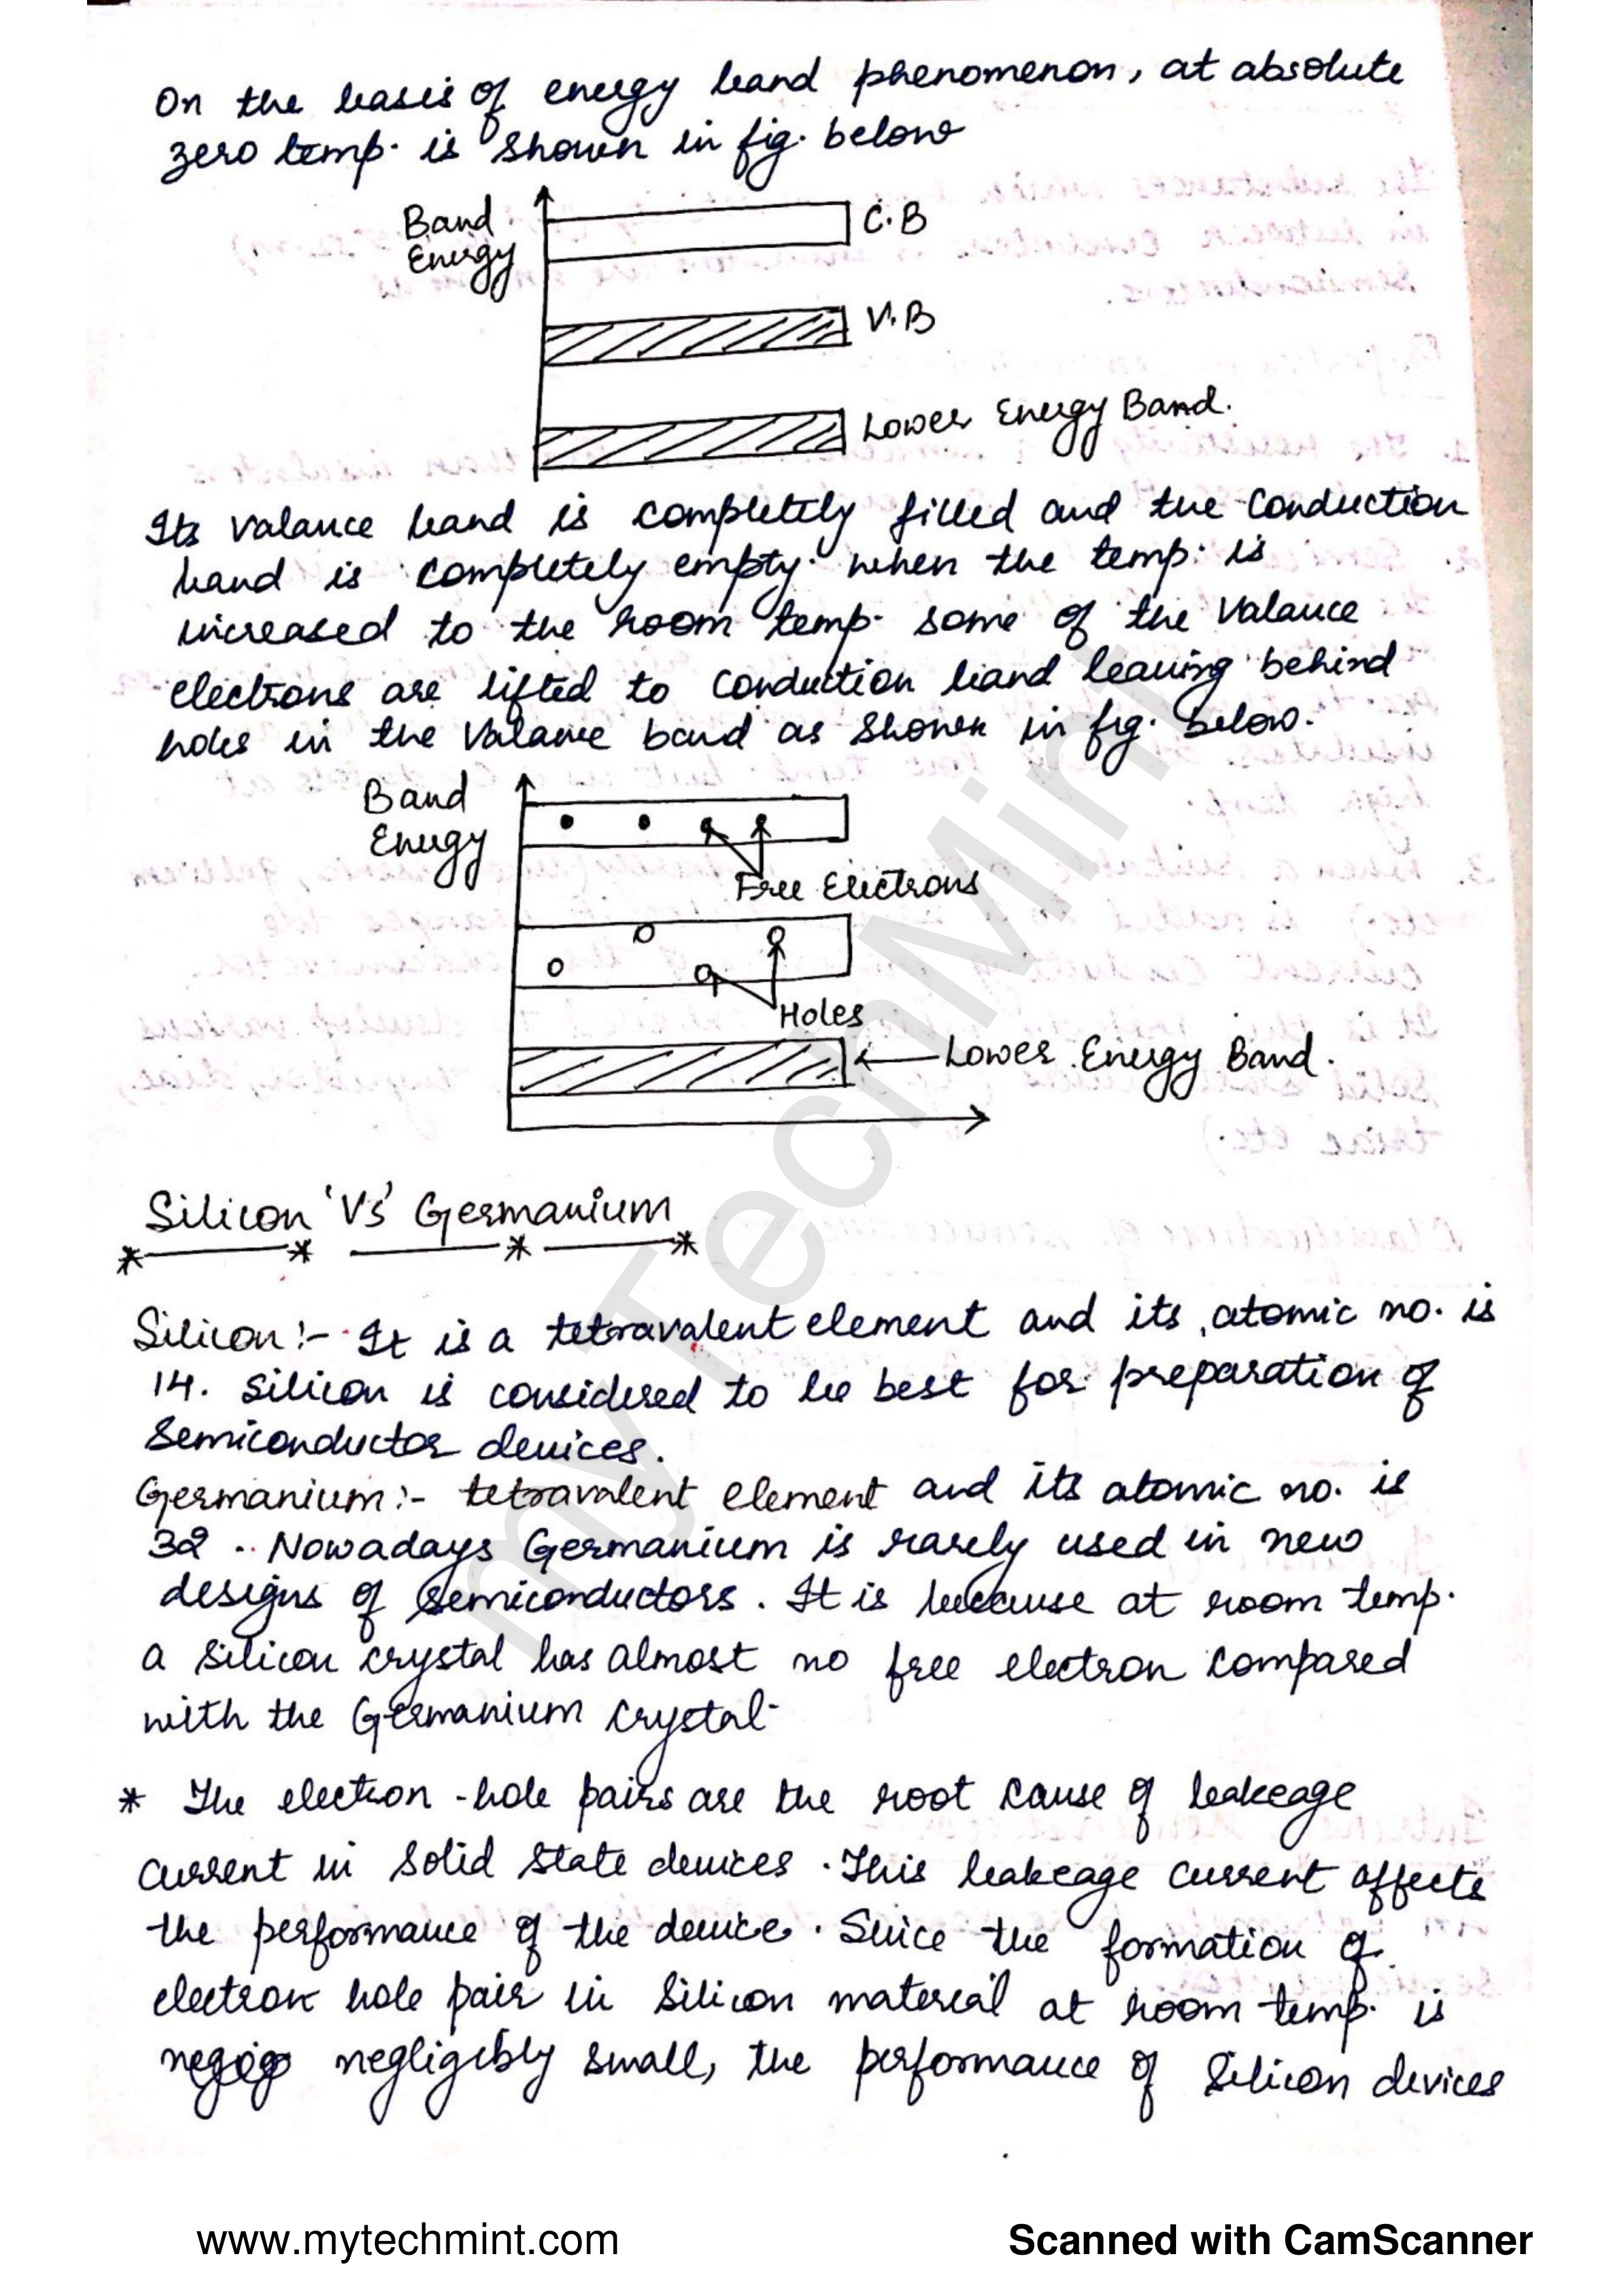 On the basis of energy band phenomenon, at absolute
zero temp. is shown in fig. below
Band
Energy
C.B
V.B
Lower Energy Band.
Its valance band is completely filled and the conduction
band is completely empty. when the temp. is
increased to the room temp. some of the valance
electrons are lifted to conduction band leaving behind
holes in the valance band as shown in fig. below.
Band
Energy
Free Electrons
Holes
Lower Energy Band.
Silicon 'Vs' Germanium
Silicon:- It is a tetravalent element and its atomic no. is
14. Silicon is considered to be best for preparation of
Semiconductor devices.
Germanium:- tetravalent element and its atomic no. is
32. Nowadays Germanium is rarely used in new
designs of semiconductors. It is because at room temp.
a silicon crystal has almost no free electron compared
with the Germanium crystal.
* The electron-hole pairs are the root cause of leakeage
current in solid state devices. This leakeage current affects
the performance of the device. Since the formation of
electron hole pair in silicon material at room temp. is
negligibly small, the performance of silicon devices
myTechMint
www.mytechmint.com
Scanned with CamScanner